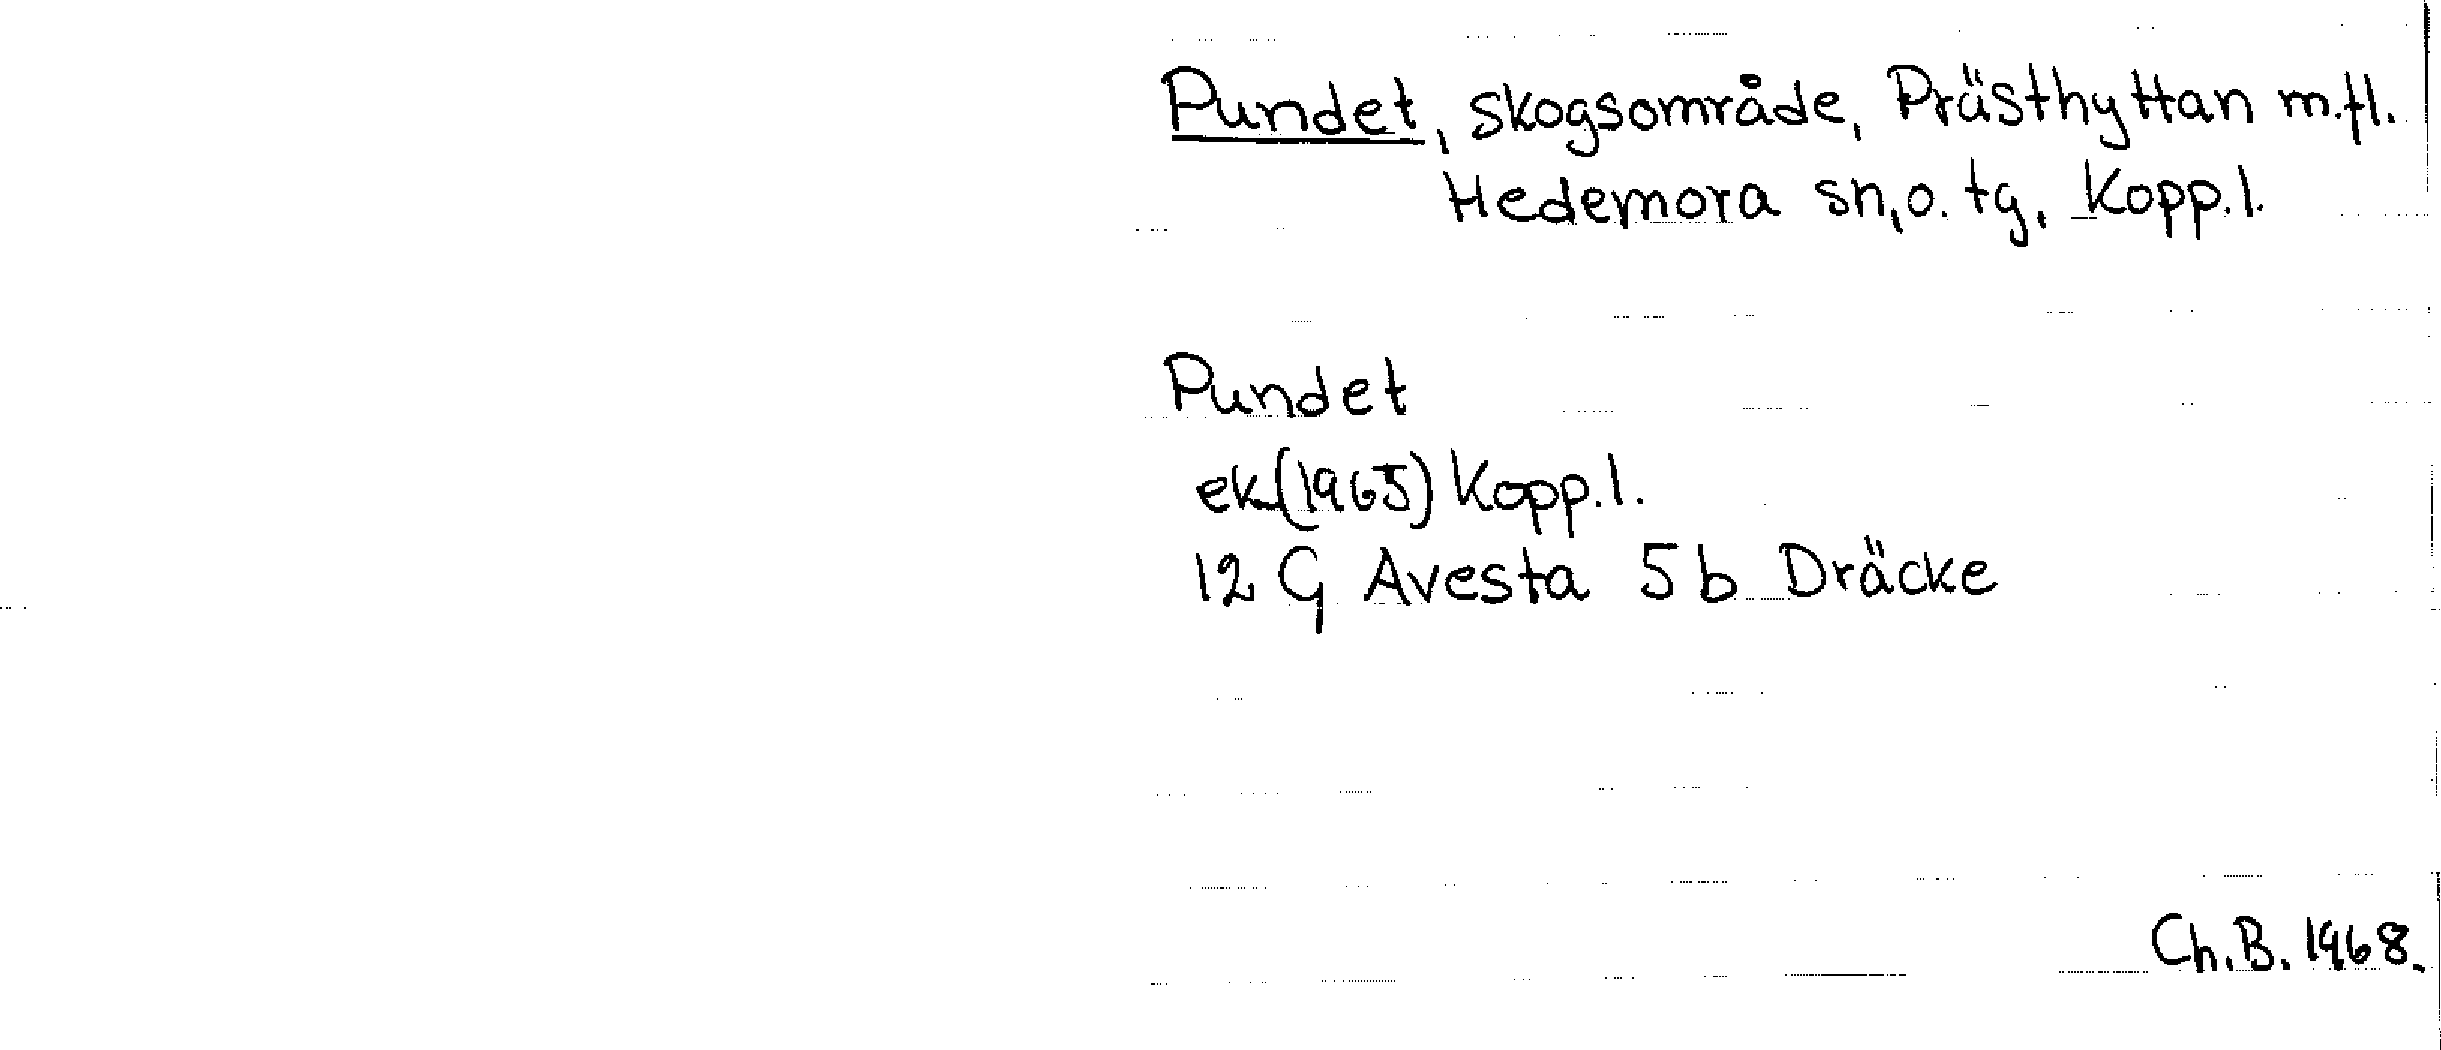 Pundet, skogsområde, Prästhyttan m.fl.
Hedemora sn, o. tg, Kopp.l.
Pundet
ek(1965) Kopp.l.
12 G Avesta 5 b Dräcke
Ch.B. 1968.